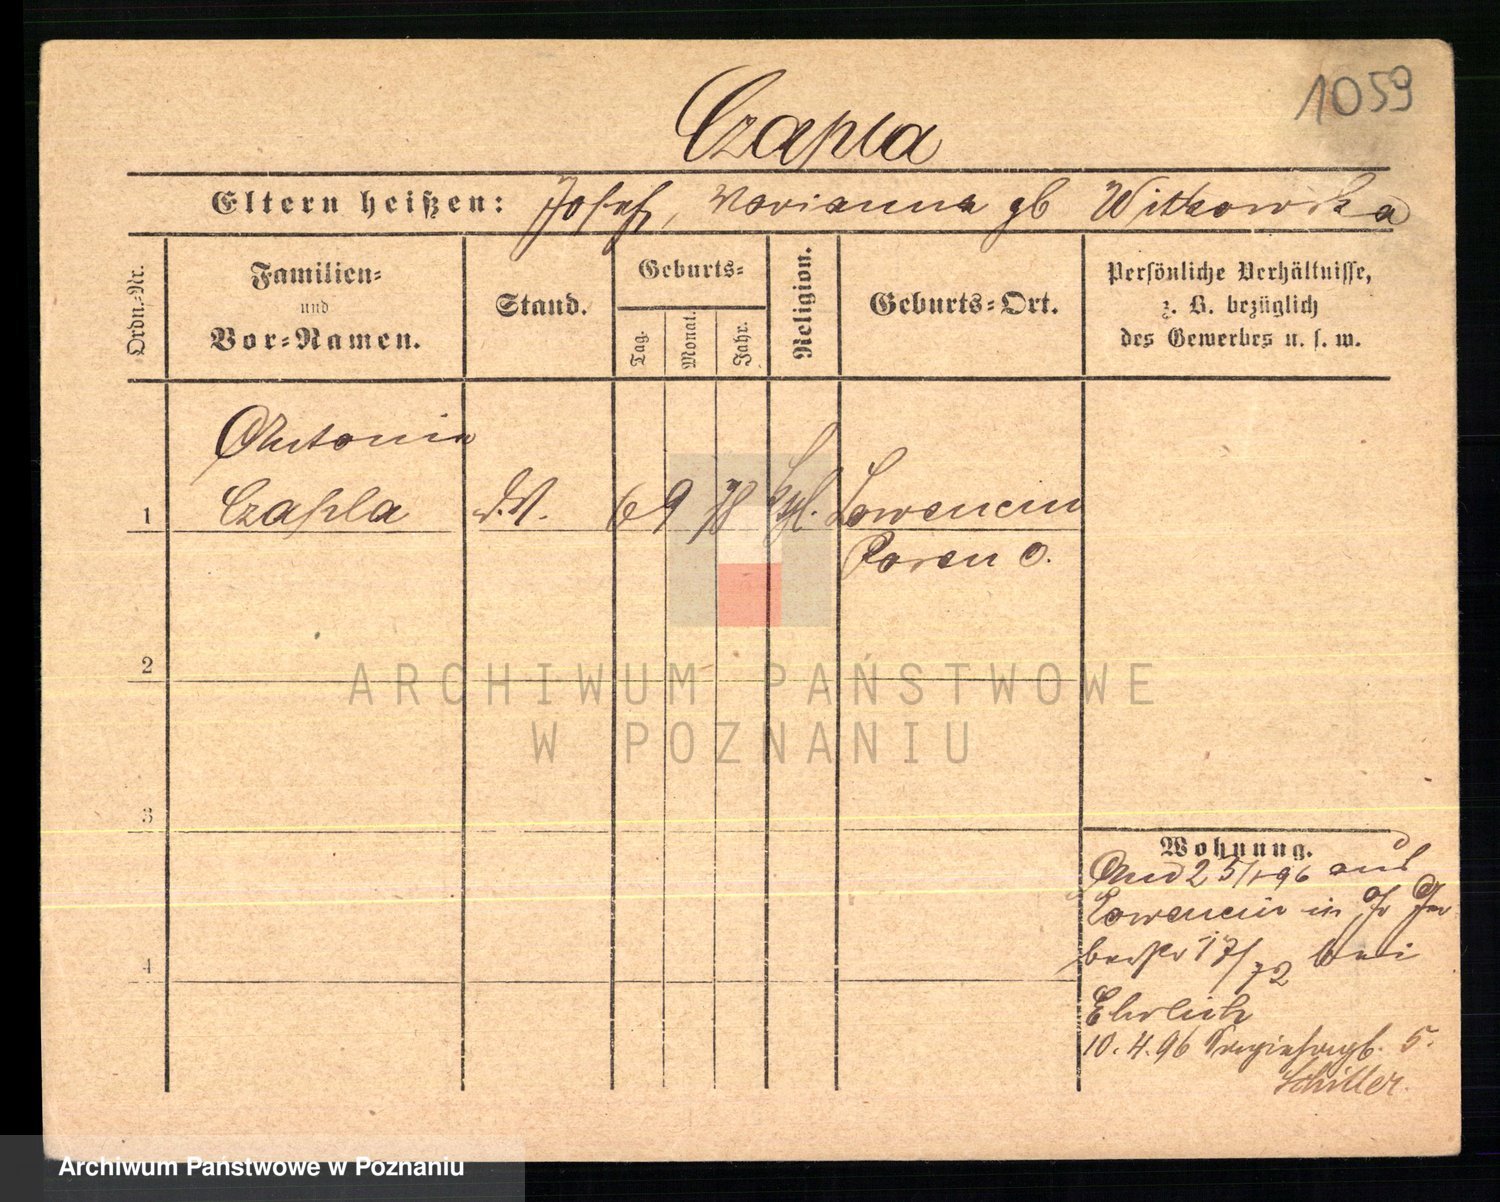 1059
Czapla
Eltern heißen: Josef, Marianna gb Witkowska
Ordn.-Nr.
Familien-
und
Vor-Namen.
Stand.
Geburts-
Tag.
Monat.
Jahr.
Religion.
Geburts-Ort.
Persönliche Verhältnisse,
z. B. bezüglich
des Gewerbes u. s. w.
Antonia
1 Czapla d.M. 6 9 78 ktl. Lowencin
Posen O.
2
3
4
Wohnung.
25/1 96 aus
Lowencin in
17/72 bei
Ehrlich
10.4.96 5.
Schiller.
ARCHIWUM PAŃSTWOWE
W POZNANIU
Archiwum Państwowe w Poznaniu